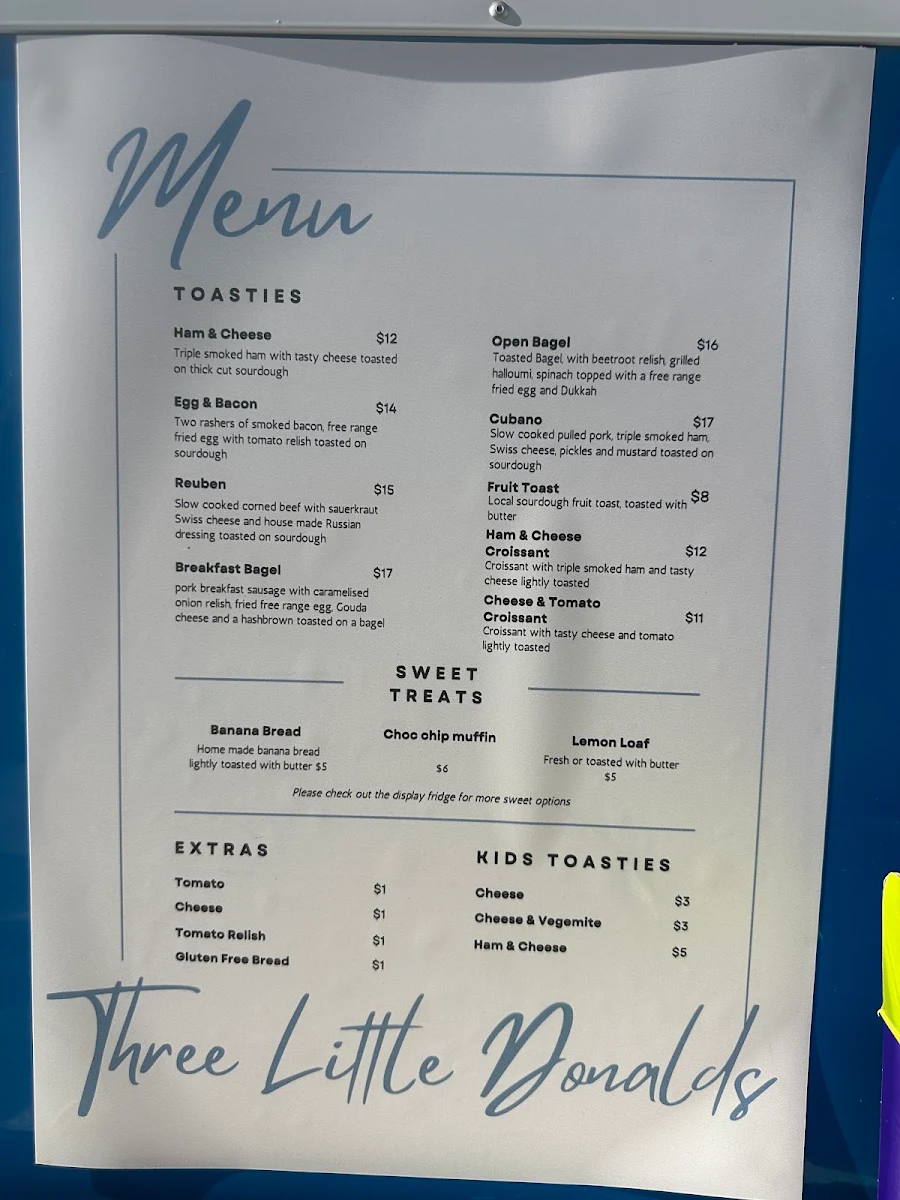 Menu
TOASTIES
Ham & Cheese $12
Triple smoked ham with tasty cheese toasted
on thick cut sourdough
Egg & Bacon $14
Two rashers of smoked bacon, free range
fried egg with tomato relish toasted on
sourdough
Reuben $15
Slow cooked corned beef with sauerkraut
Swiss cheese and house made Russian
dressing toasted on sourdough
Breakfast Bagel $17
pork breakfast sausage with caramelised
onion relish, fried free range egg, Gouda
cheese and a hashbrown toasted on a bagel
Open Bagel $16
Toasted Bagel, with beetroot relish, grilled
halloumi, spinach topped with a free range
fried egg and Dukkah
Cubano $17
Slow cooked pulled pork, triple smoked ham,
Swiss cheese, pickles and mustard toasted on
sourdough
Fruit Toast $8
Local sourdough fruit toast, toasted with
butter
Ham & Cheese
Croissant $12
Croissant with triple smoked ham and tasty
cheese lightly toasted
Cheese & Tomato
Croissant $11
Croissant with tasty cheese and tomato
lightly toasted
SWEET
TREATS
Banana Bread
Home made banana bread
lightly toasted with butter $5
Choc chip muffin
$6
Lemon Loaf
Fresh or toasted with butter
$5
Please check out the display fridge for more sweet options
EXTRAS
Tomato $1
Cheese $1
Tomato Relish $1
Gluten Free Bread $1
KIDS TOASTIES
Cheese $3
Cheese & Vegemite $3
Ham & Cheese $5
Three Little Donalds